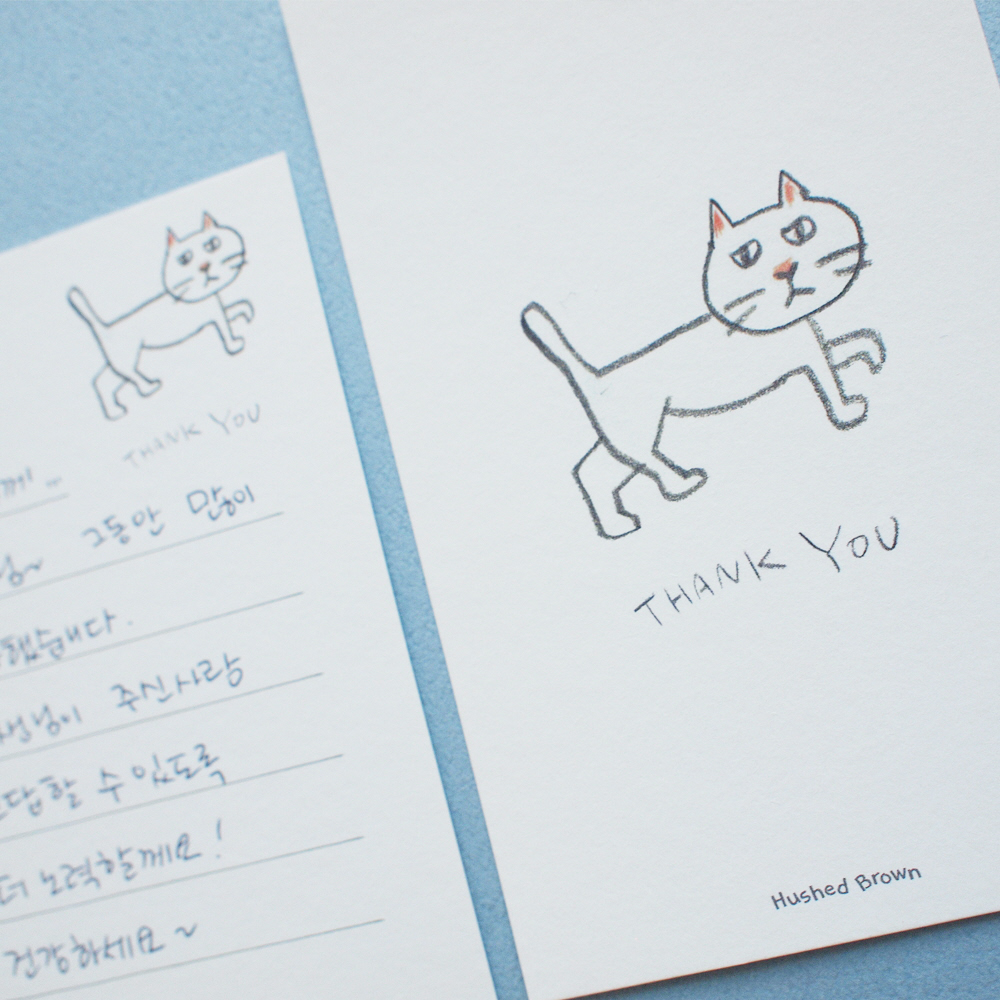 THANK YOU
께...
그동안 많이
했습니다.
주신 사랑
답할 수 있도록
더 노력할께요!
건강하세요~
THANK YOU
Hushed Brown